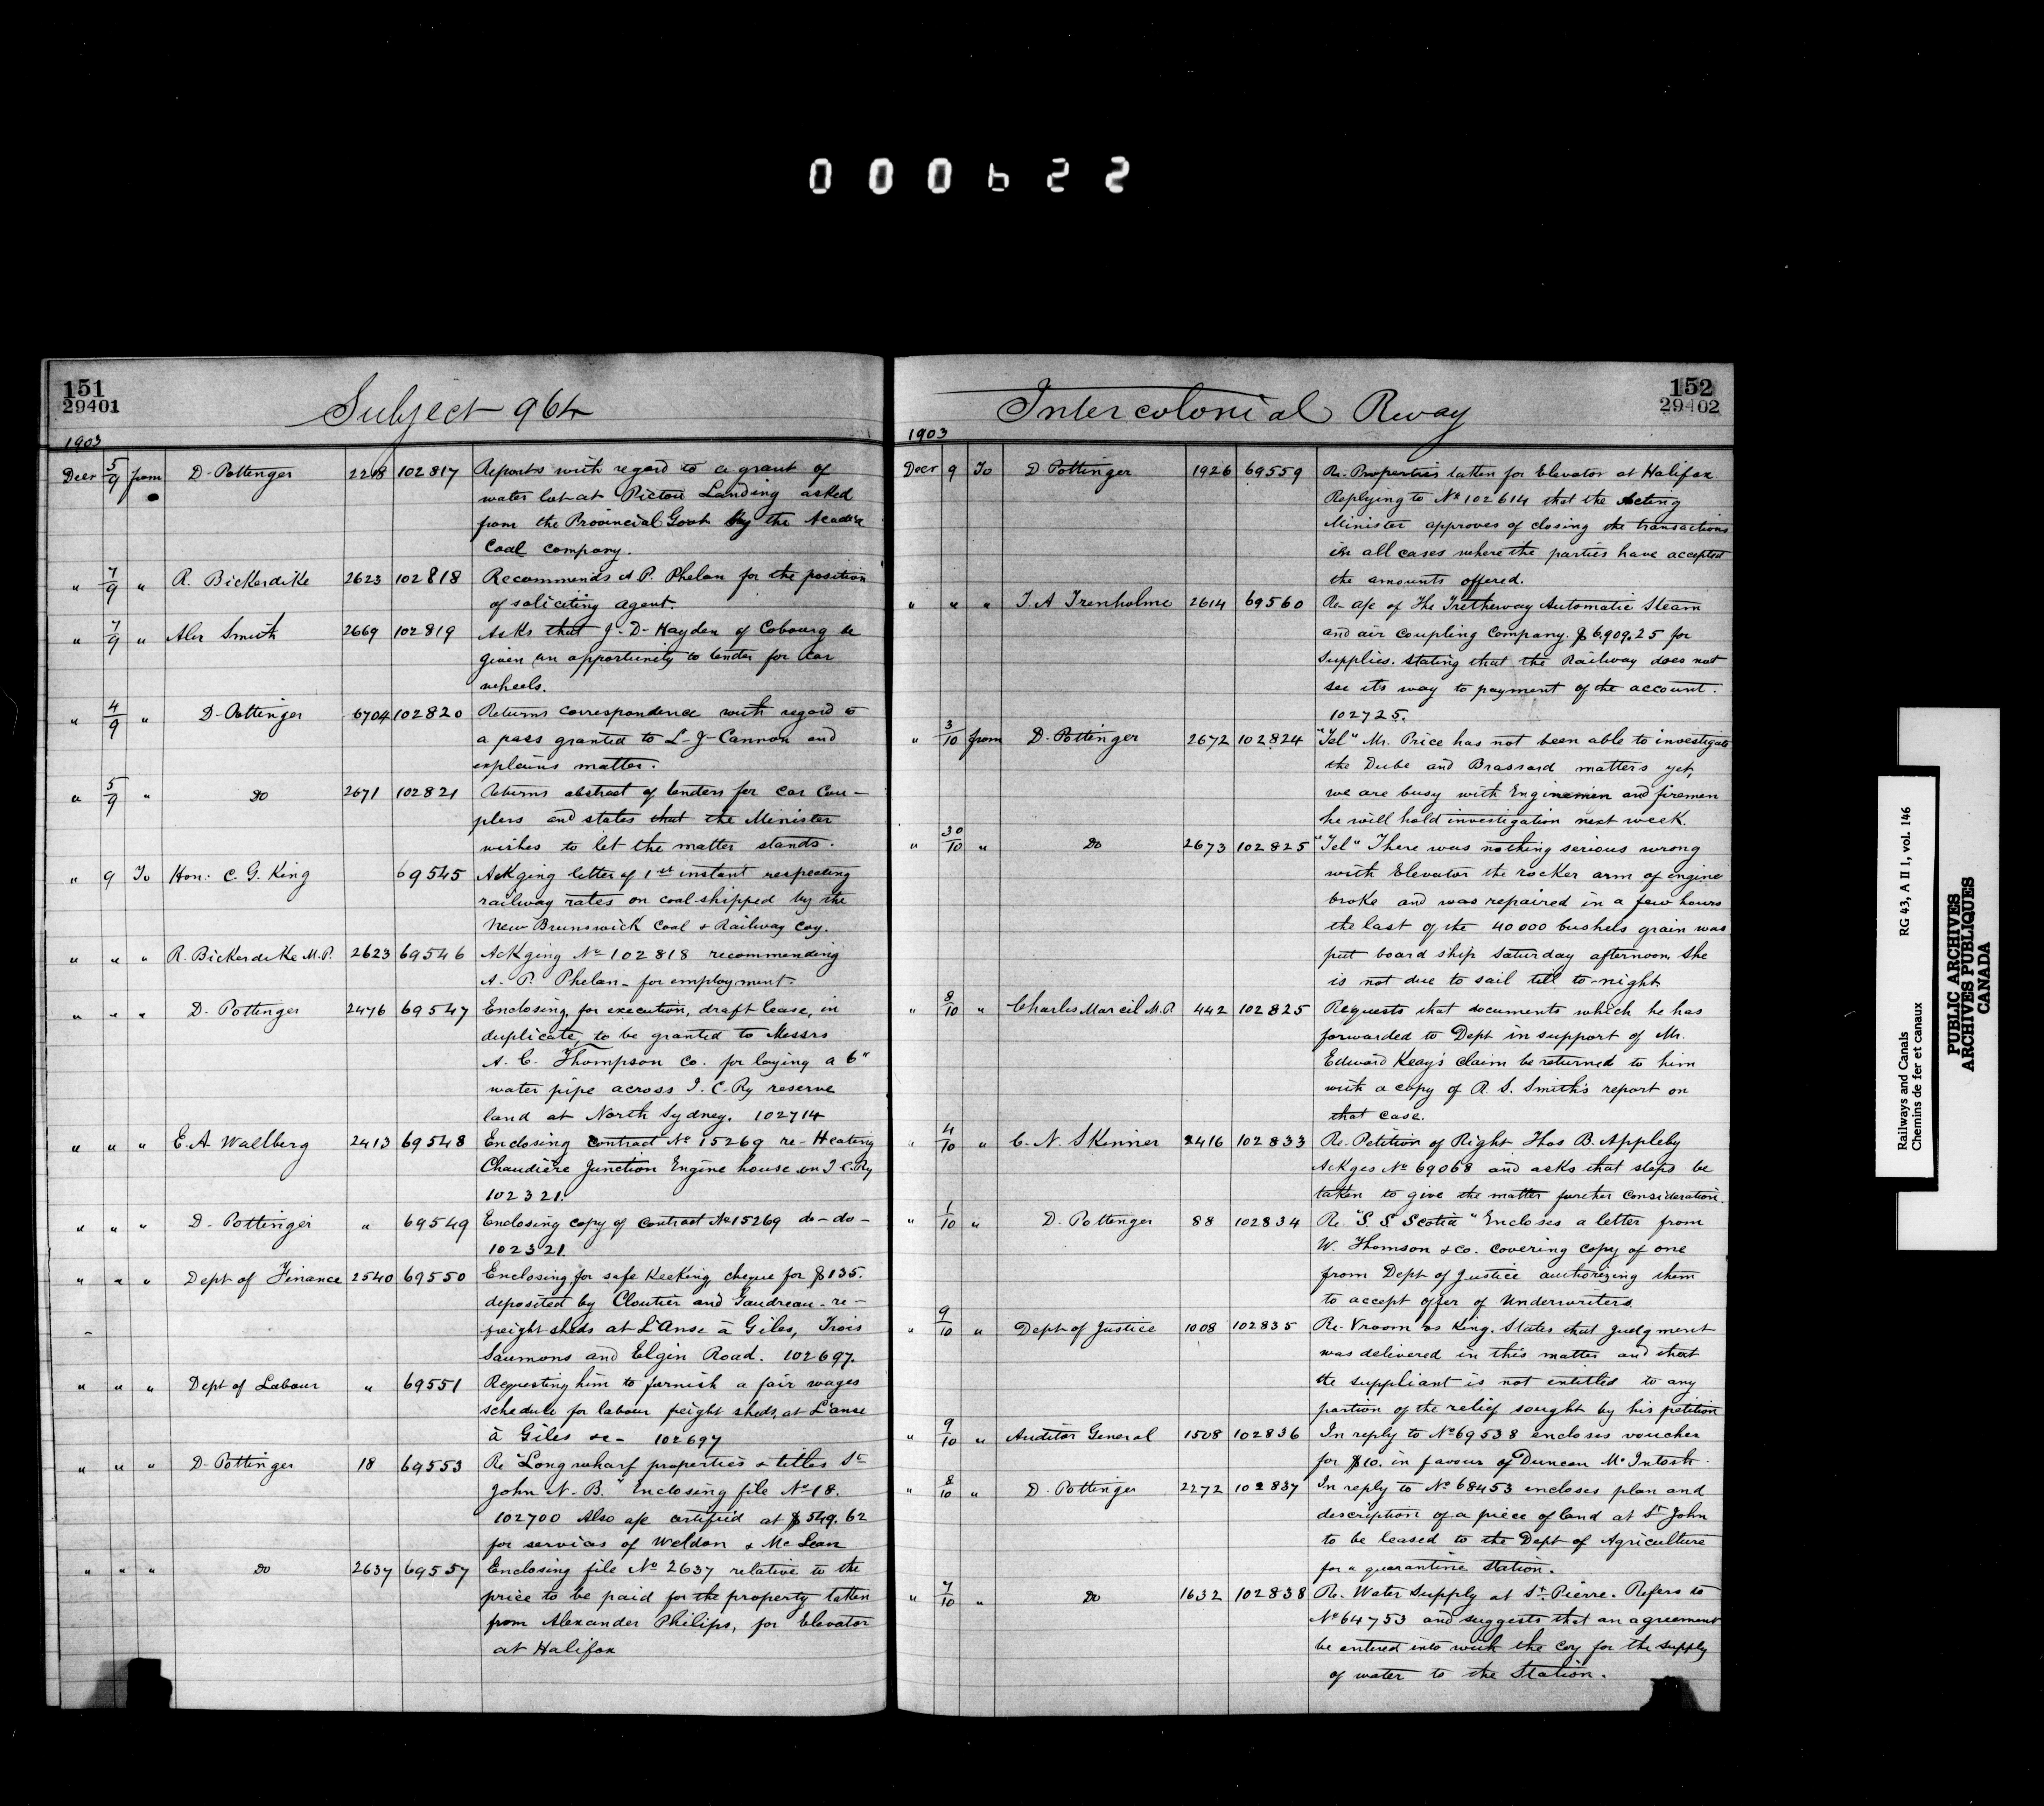 000622
151
29401
Subject 964
1903
Decr 5/9 from D. Pottinger 2218 102817 Reports with regard to a grant of
water lot at Pictou Landing asked
from the Provincial Govt by the Acadia
Coal Company.
" 7/9 " R. Bickerdike 2623 102818 Recommends A P. Phelan for the position
of soliciting agent.
" 7/9 " Alex Smith 2669 102819 Asks that J. D. Hayden of Cobourg be
given an opportunity to tender for car
wheels.
" 4/9 " D. Pottinger 6704 102820 Returns correspondence with regard to
a pass granted to L. J. Cannon and
explains matter.
" 5/9 " Do 2671 102821 Returns abstract of tenders for car cou-
plers and states that the Minister
wishes to let the matter stands.
" 9 To Hon: C. G. King 69545 Ackging letter of 1st instant respecting
railway rates on coal shipped by the
New Brunswick Coal & Railway Coy.
" " " R. Bickerdike M.P. 2623 69546 Ackging No 102818 recommending
A. P. Phelan for employment.
" " " D. Pottinger 2476 69547 Enclosing, for execution, draft lease, in
duplicate, to be granted to Messrs
A. C. Thompson Co. for laying a 6"
water pipe across I. C. Ry reserve
land at North Sydney. 102714
" " " E. A. Wallberg 2413 69548 Enclosing contract No 15269 re- Heating
Chaudière Junction Engine house on I C Ry
102321.
" " " D. Pottinger " 69549 Enclosing copy of contract No 15269 do-do-
102321.
" " " Dept of Finance 2540 69550 Enclosing for safe Keeking, cheque for $135.
deposited by Cloutier and Gaudreau - re-
freight sheds at L'Anse à Giles, Trois
Saumons and Elgin Road. 102697.
" " " Dept of Labour " 69551 Requesting him to furnish a fair wages
schedule for labour freight sheds, at L'anse
à Giles &c- 102697
" " " D. Pottinger 18 69553 Re "Long wharf properties & titles St
John N. B." Enclosing file No 18.
102700 Also a/c certified at $549.62
for services of Weldon & McLean
" " " Do 2637 69557 Enclosing file No 2637 relative to the
price to be paid for the property taken
from Alexander Philips, for Elevator
at Halifax
152
29402
Intercolonial Rway
1903
Decr 9 To D Pottinger 1926 69559 Re- Properties taken for Elevator at Halifax
Replying to No 102614 that the Acting
Minister approves of closing the transactions
in all cases where the parties have accepted
the amounts offered.
" " " T. A Trenholme 2614 69560 Re- a/c of The Tretherway Automatic Steam
and air coupling Company. $6,909.25 for
Supplies. Stating that the Railway does not
see its way to payment of the account.
102725.
" 3/10 from D. Pottinger 2672 102824 "Tel" Mr. Price has not been able to investigate
the Dube and Brassard matters yet,
we are busy with Enginemen and firemen
he will hold investigation next week.
" 30/10 " Do 2673 102825 "Tel" There was nothing serious wrong
with Elevator the rocker arm of engine
broke and was repaired in a few hours
the last of the 40000 bushels grain was
put board ship Saturday afternoon, She
is not due to sail till to-night
" 8/10 " Charles Marcil M.P. 442 102825 Requests that documents which he has
forwarded to Dept in support of Mr.
Edward Keay's claim be returned to him
with a copy of R. S. Smith's report on
that case.
" 4/10 " C. N. Skinner 2416 102833 Re. Petition of Right Thos B. Appleby
Ackges No 69068 and asks that steps be
taken to give the matter further consideration.
" 1/10 " D. Pottinger 88 102834 Re. "S. S Scotia" Encloses a letter from
W. Thomson & Co. covering copy of one
from Dept of Justice authorizing them
to accept offer of Underwriters.
" 9/10 " Dept of Justice 1008 102835 Re. Vroom vs King. States that judgment
was delivered in this matter and that
the suppliant is not entitled to any
portion of the relief sought by his petition
" 9/10 " Auditor General 1508 102836 In reply to No 69538 encloses voucher
for $10. in favour of Duncan McIntosh.
" 8/10 " D. Pottinger 2272 102837 In reply to No 68453 encloses plan and
description of a piece of land at St John
to be leased to the Dept of Agriculture
for a quarantine station.
" 7/10 " Do 1632 102838 Re. Water Supply at St. Pierre. Refers to
No 64753 and suggests that an agreement
be entered into with the coy for the supply
of water to the Station.
Railways and Canals RG 43, A II 1, vol. 146
Chemins de fer et canaux
PUBLIC ARCHIVES
ARCHIVES PUBLIQUES
CANADA